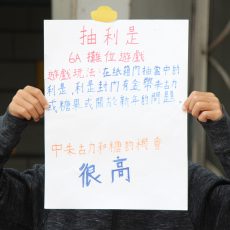 抽利是
6A 攤位遊戲
遊戲玩法：在紙箱內抽當中的
利是，利是封內有金幣朱古力
或糖果或關於新年的問題。
中朱古力和糖的機會
很高